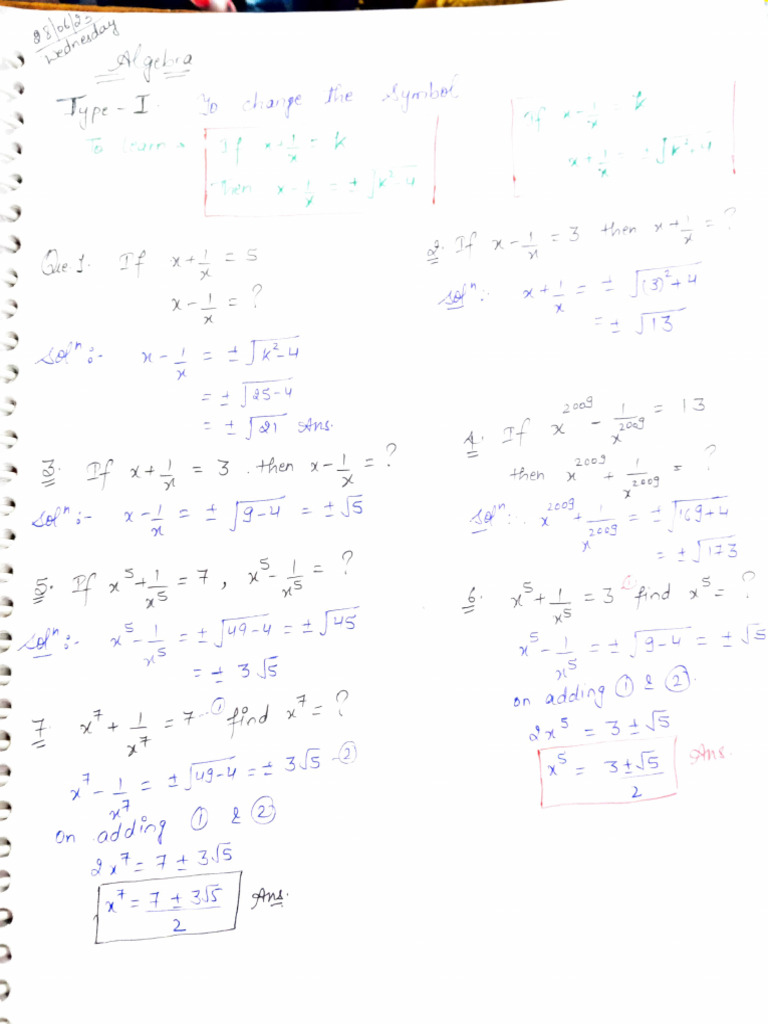 28/06/23
Wednesday
Algebra
Type - I. To change the Symbol
To learn → If x + 1/x = k
Then x - 1/x = ± √k²-4
If x - 1/x = k
x + 1/x = ± √k²+4
Que.1. If x + 1/x = 5
x - 1/x = ?
Solⁿ:- x - 1/x = ± √k²-4
= ± √25-4
= ± √21 Ans.
2. If x - 1/x = 3 then x + 1/x = ?
Solⁿ:- x + 1/x = ± √(3)²+4
= ± √13
3. If x + 1/x = 3. then x - 1/x = ?
Solⁿ:- x - 1/x = ± √9-4 = ± √5
4. If x²⁰⁰⁹ - 1/x²⁰⁰⁹ = 13
then x²⁰⁰⁹ + 1/x²⁰⁰⁹ = ?
Solⁿ:. x²⁰⁰⁹ + 1/x²⁰⁰⁹ = ± √169+4
= ± √173
5. If x⁵ + 1/x⁵ = 7, x⁵ - 1/x⁵ = ?
Solⁿ:- x⁵ - 1/x⁵ = ± √49-4 = ± √45
= ± 3√5
6. x⁵ + 1/x⁵ = 3 ① find x⁵ = ?
x⁵ - 1/x⁵ = ± √9-4 = ± √5
on adding ① & ②
2x⁵ = 3 ± √5
x⁵ = 3 ± √5 / 2 Ans.
7. x⁷ + 1/x⁷ = 7 -① find x⁷ = ?
x⁷ - 1/x⁷ = ± √49-4 = ± 3√5 -②
on adding ① & ②
2x⁷ = 7 ± 3√5
x⁷ = 7 ± 3√5 / 2 Ans.